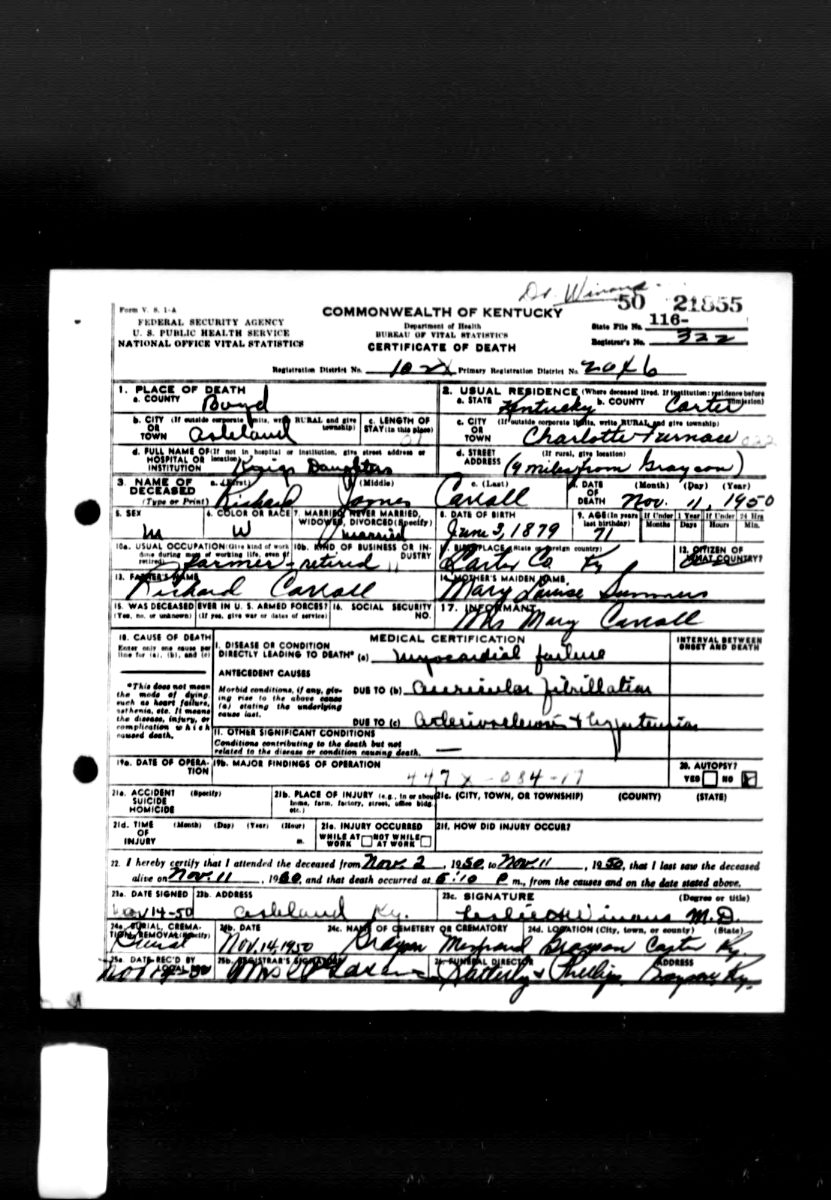 Dr. Winans
50 21855
Form V. S. 1-A
FEDERAL SECURITY AGENCY
U. S. PUBLIC HEALTH SERVICE
NATIONAL OFFICE VITAL STATISTICS
COMMONWEALTH OF KENTUCKY
Department of Health
BUREAU OF VITAL STATISTICS
CERTIFICATE OF DEATH
State File No. 116-
Registrar's No. 322
Registration District No. Primary Registration District No.
1. PLACE OF DEATH
a. COUNTY Boyd
2. USUAL RESIDENCE (Where deceased lived. If institution: residence before admission)
a. STATE Kentucky b. COUNTY Carter
b. CITY OR TOWN (If outside corporate limits, write RURAL and give township) Ashland
c. LENGTH OF STAY (in this place)
c. CITY OR TOWN (If outside corporate limits, write RURAL and give township) Charlotte Furnace
d. FULL NAME OF HOSPITAL OR INSTITUTION (If not in hospital or institution, give street address or location) Kings Daughters
d. STREET ADDRESS (If rural, give location) (9 miles from Grayson)
3. NAME OF DECEASED (Type or Print) a. (First) Richard (Middle) James c. (Last) Carroll
4. DATE OF DEATH (Month) (Day) (Year) Nov. 11, 1950
5. SEX M
6. COLOR OR RACE W
7. MARRIED, NEVER MARRIED, WIDOWED, DIVORCED (Specify) Married
8. DATE OF BIRTH June 3, 1879
9. AGE (In years last birthday) 71 If Under 1 Year Months Days If Under 24 Hrs Hours Min.
10a. USUAL OCCUPATION (Give kind of work done during most of working life, even if retired) Farmer - retired
10b. KIND OF BUSINESS OR INDUSTRY
11. BIRTHPLACE (State or foreign country) Carter Co Ky
12. CITIZEN OF WHAT COUNTRY?
13. FATHER'S NAME Richard Carroll
14. MOTHER'S MAIDEN NAME Mary Louise Summers
15. WAS DECEASED EVER IN U. S. ARMED FORCES? (Yes, no, or unknown) (If yes, give war or dates of service)
16. SOCIAL SECURITY NO.
17. INFORMANT Mrs Mary Carroll
18. CAUSE OF DEATH
Enter only one cause per line for (a), (b), and (c)
MEDICAL CERTIFICATION
INTERVAL BETWEEN ONSET AND DEATH
I. DISEASE OR CONDITION DIRECTLY LEADING TO DEATH* (a) Myocardial failure
*This does not mean the mode of dying, such as heart failure, asthenia, etc. It means the disease, injury, or complication which caused death.
ANTECEDENT CAUSES
Morbid conditions, if any, giving rise to the above cause (a) stating the underlying cause last.
DUE TO (b) Auricular fibrillation
DUE TO (c) Arteriosclerosis & hypertension
II. OTHER SIGNIFICANT CONDITIONS
Conditions contributing to the death but not related to the disease or condition causing death. —
19a. DATE OF OPERATION
19b. MAJOR FINDINGS OF OPERATION
447 X - 084 - 17
20. AUTOPSY?
YES NO
21a. ACCIDENT SUICIDE HOMICIDE (Specify)
21b. PLACE OF INJURY (e.g., in or about home, farm, factory, street, office bldg. etc.)
21c. (CITY, TOWN, OR TOWNSHIP) (COUNTY) (STATE)
21d. TIME OF INJURY (Month) (Day) (Year) (Hour) m.
21e. INJURY OCCURRED WHILE AT WORK NOT WHILE AT WORK
21f. HOW DID INJURY OCCUR?
22. I hereby certify that I attended the deceased from Nov. 2, 1950 to Nov 11, 1950, that I last saw the deceased
alive on Nov. 11, 1950, and that death occurred at 5:10 P m., from the causes and on the date stated above.
23a. DATE SIGNED Nov 14-50
23b. ADDRESS Ashland Ky.
23c. SIGNATURE (Degree or title) Leslie H Winans M.D.
24a. BURIAL, CREMATION, REMOVAL (Specify) Burial
24b. DATE Nov 14, 1950
24c. NAME OF CEMETERY OR CREMATORY Grayson Memorial
24d. LOCATION (City, town, or county) (State) Grayson Carter Ky.
25a. DATE REC'D BY LOCAL REG.
25b. REGISTRAR'S SIGNATURE
26. FUNERAL DIRECTOR Phillips
ADDRESS Grayson, Ky.